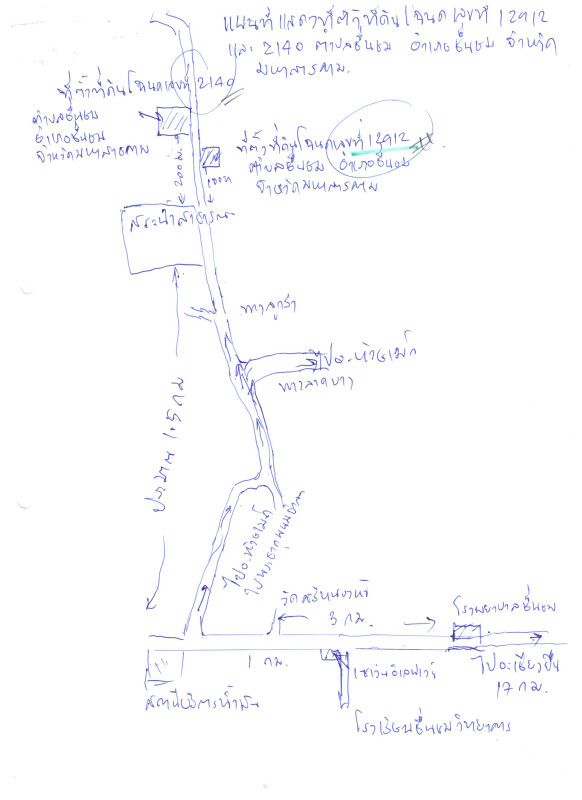 แผนที่แสดงที่ตั้งที่ดินโฉนดเลขที่ 12912
และ 2140 ตำบลชื่นชม อำเภอชื่นชม จังหวัด
มหาสารคาม.
ที่ตั้งที่ดินโฉนดเลขที่ 2140
ตำบลชื่นชม
อำเภอชื่นชม
จังหวัดมหาสารคาม
ที่ตั้งที่ดินโฉนดเลขที่ 12912
ตำบลชื่นชม อำเภอชื่นชม
จังหวัดมหาสารคาม
200 ม.
สระน้ำสาธารณะ
ทางลูกรัง
ไปอ.ห้วยเม็ก
ทางลาดยาง
ประมาณ 1.5 กม
ไปอ.ห้วยเม็ก
3 กม.
โรงพยาบาลชื่นชม
1 กม.
เซเว่นอีเลฟเว่น
ไปอ.เชียงยืน
17 กม.
สถานีบริการน้ำมัน
โรงเรียนชื่นชมวิทยาคาร